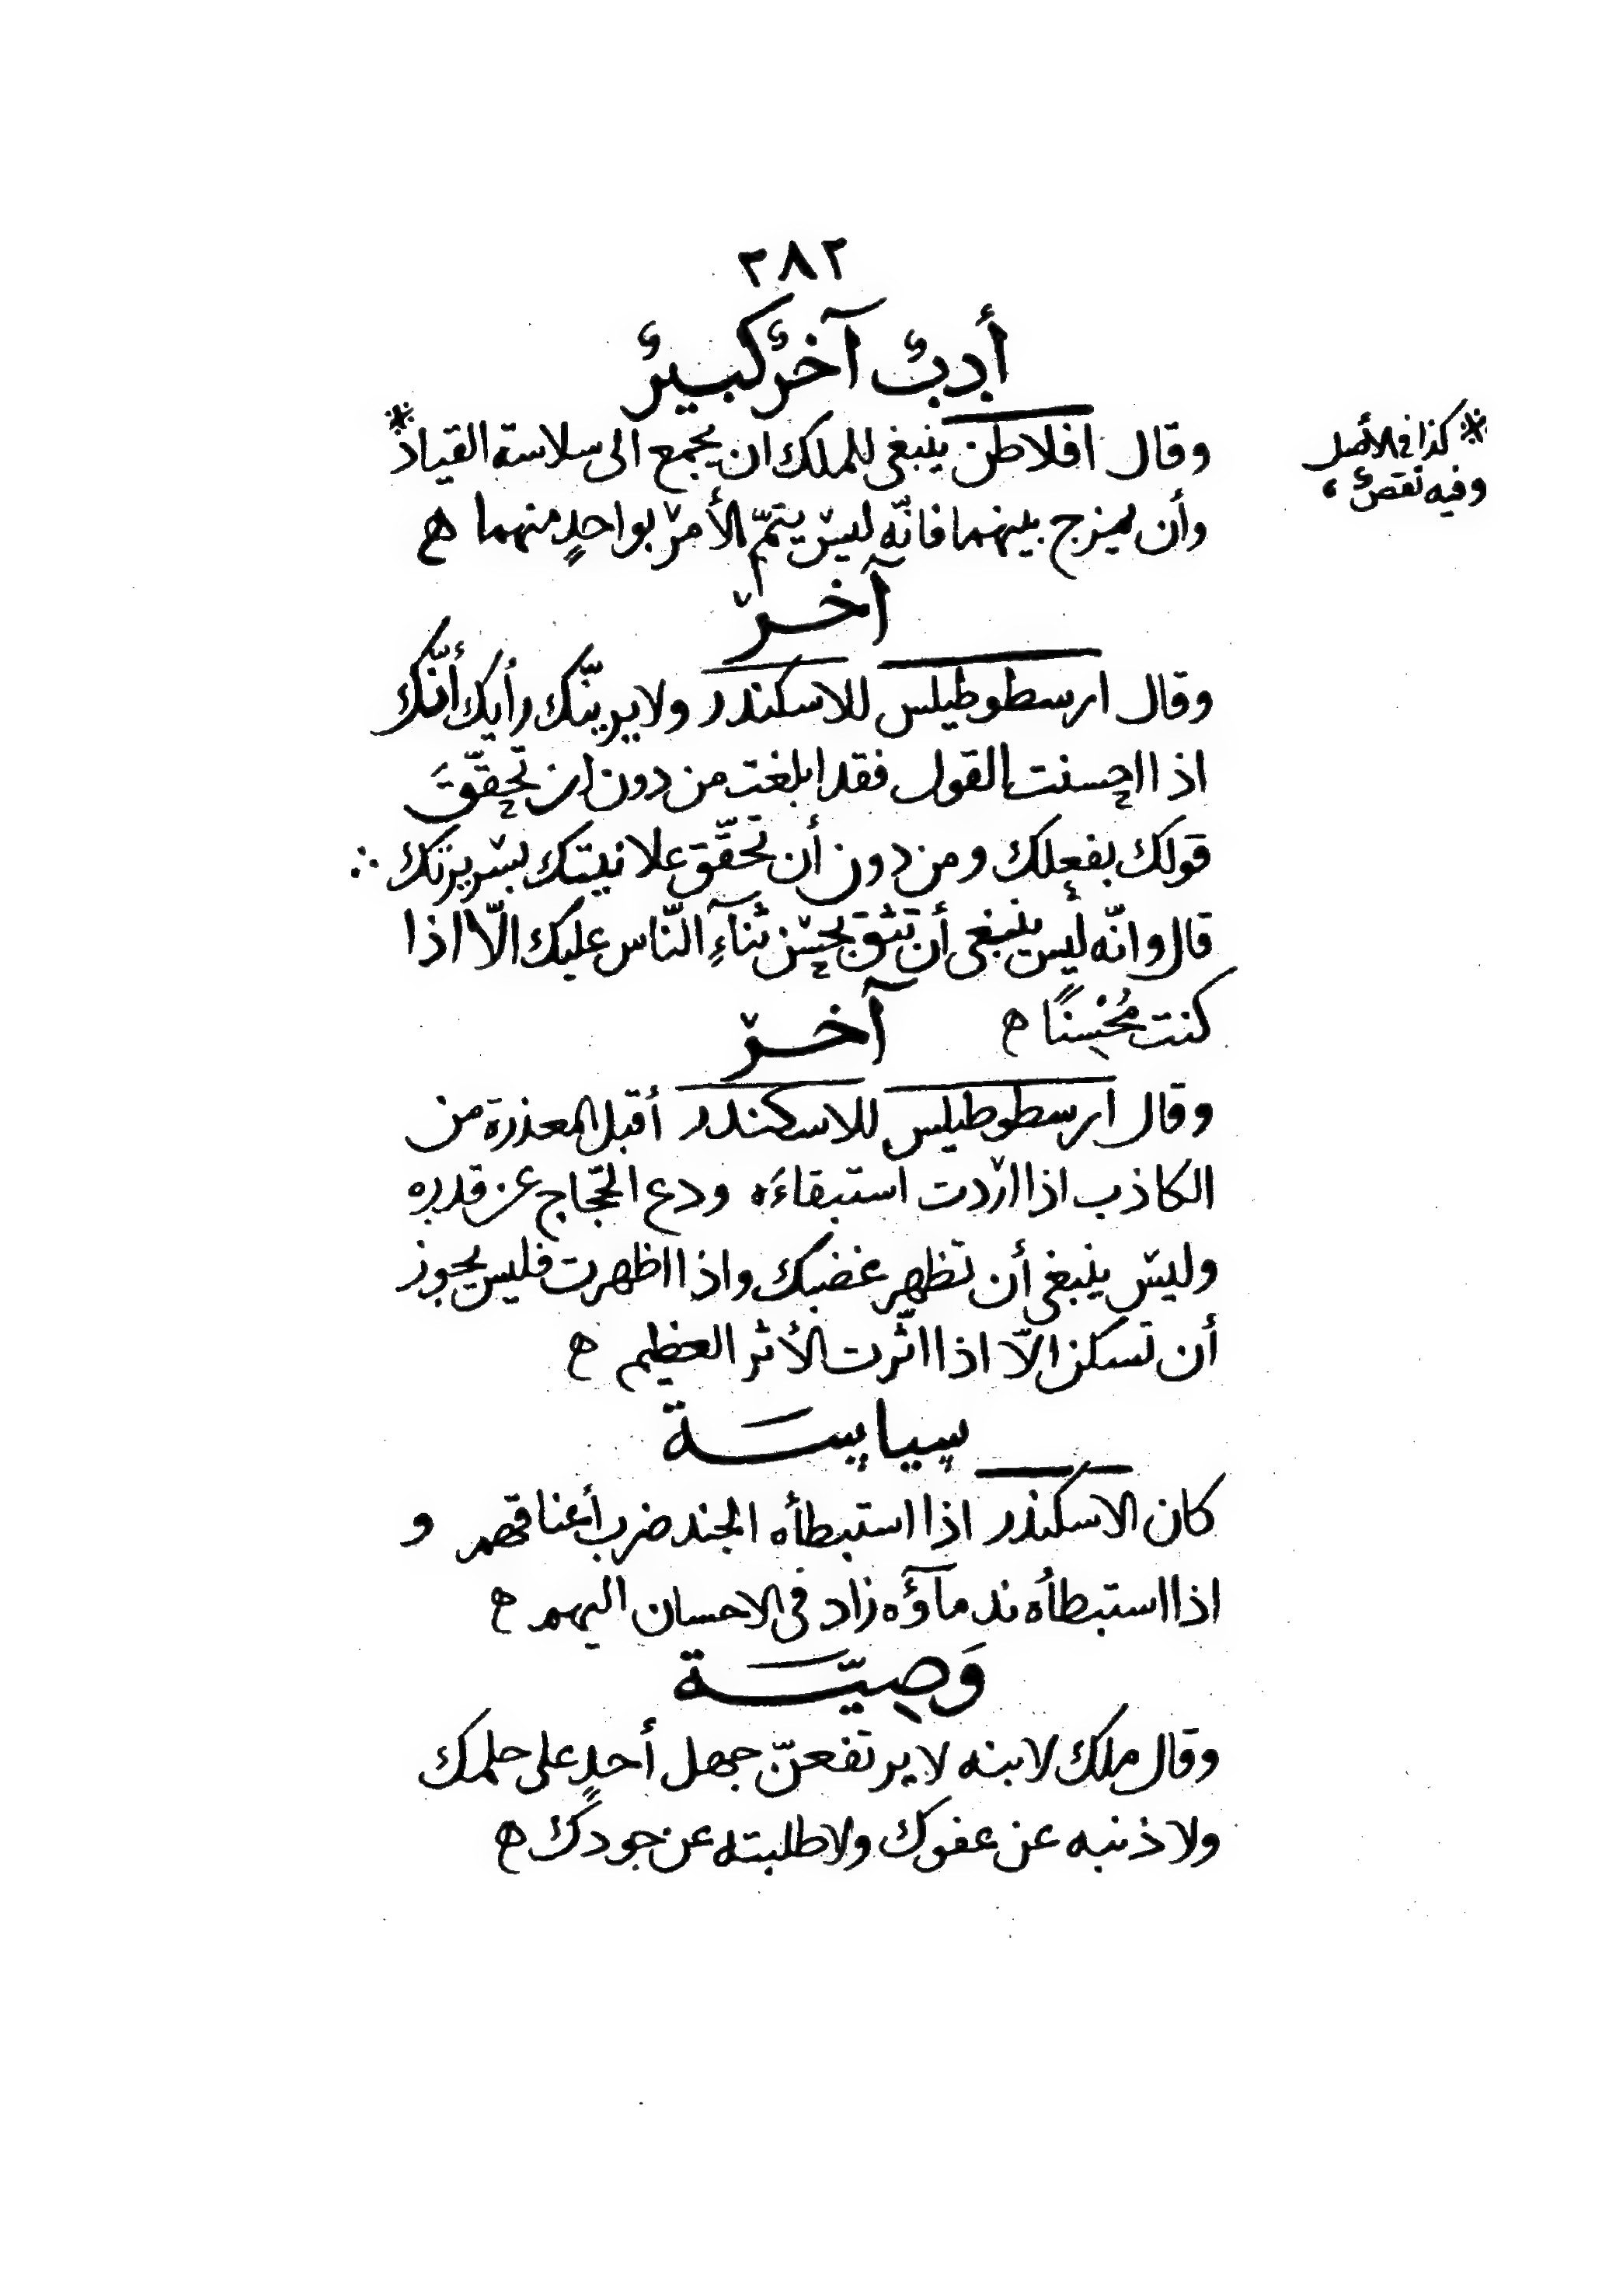 ٢٨٢
أدبٌ آخرُ كبيرٌ
وقال افلاطن ينبغى للملك ان يجمع الى سلاسة القياد*
* كذا فى الأصل
وفيه نقصٌ،
وأن يمزج بينهما فانّه ليس يتمّ الأمر بواحدٍ منهما ه
آخر
وقال ارسطوطيلس للاسكندر ولا يرينّك رأيك أنّك
اذا احسنت القول فقد ابلغت من دون ان تحقّقَ
قولك بفعلك ومن دون أن تحقّق علانيتك بسريرتك ∴
قال وانّه ليس ينبغى أن تثق بحسن ثنآءِ النّاس عليك الّا اذا
كنت مُحْسِنًا ه
آخر
وقال ارسطوطيلس للاسكندر أقبل المعذرة من
الكاذب اذا اردت استبقاءَه ودع الحجّاج عن قدره
وليس ينبغى أن تظهر غضبك واذا اظهرت فليس يجوز
أن تسكن الّا اذا اثّرت الأثر العظيم ه
سياسَة
كان الاسكندر اذا استبطأه الجند ضرب أعناقهم و
اذا استبطأه ندمآؤه زاد فى الاحسان اليهم ه
وَصِيَّة
وقال ملك لابنه لا يرتفعنّ جهل أحدٍ على حلمك
ولا ذنبه عن عفوك ولا طلبته عن جودك ه